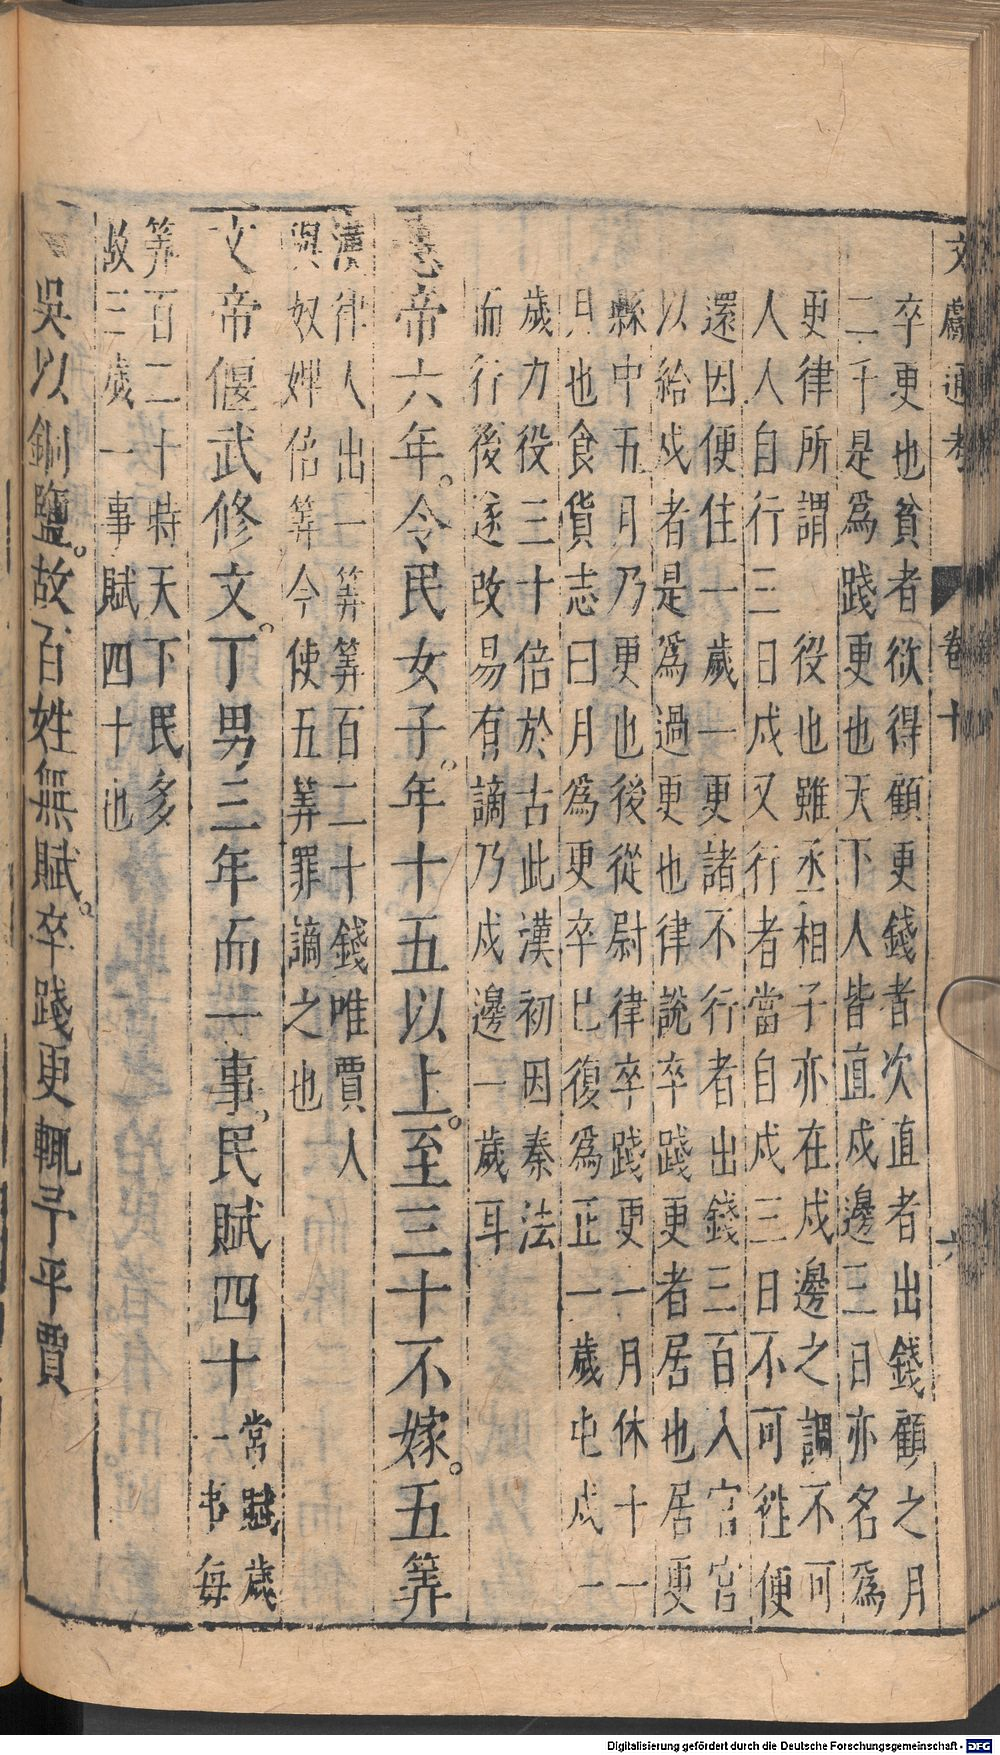 文獻通考 卷十 六
卒更也貧者欲得顧更錢者次直者出錢顧之月
二千是爲踐更也天下人皆直戍邊三日亦名爲
更律所謂 役也雖丞相子亦在戍邊之調不可
人人自行三日戍又行者當自戍三日不可徃便
還因便住一歲一更諸不行者出錢三百入官官
以給戍者是爲過更也律說卒踐更者居也居更
縣中五月乃更也後從尉律卒踐更一月休十一
月也食貨志曰月爲更卒已復爲正一歲屯戍一
歲力役三十倍於古此漢初因秦法
而行後遂改易有謫乃戍邊一歲耳
惠帝六年。令民女子。年十五以上。至三十不嫁。五筭
漢律人出一筭筭百二十錢唯賈人
與奴婢倍筭今使五筭罪謫之也
文帝偃武修文。丁男三年而一事。民賦四十 常賦歲
一事每
筭百二十時天下民多
故三歲一事賦四十也
吳以銅鹽。故百姓無賦。卒踐更輒予平賈
Digitalisierung gefördert durch die Deutsche Forschungsgemeinschaft - DFG